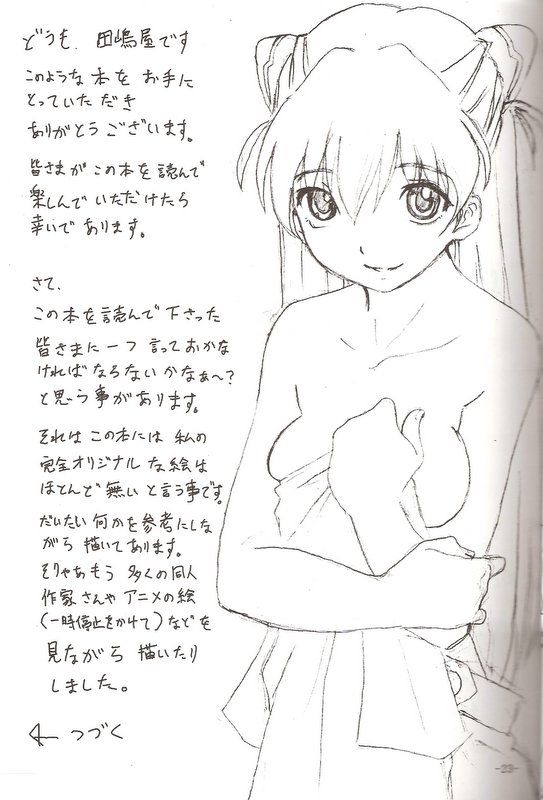 どうも、田嶋屋です
このような本を お手に
とっていた だき
ありがとう ございます。
皆さまが この本を読んで
楽しんで いただけたら
幸いで あります。
さて、
この本を読んで 下さった
皆さまに一つ 言っておかな
ければならない かなぁ〜?
と思う事があります。
それは この本には 私の
完全オリジナル な絵は
ほとんど 無い と言う事です。
だいたい 何かを参考にしな
がら 描いてあります。
そりゃあもう 多くの同人
作家さんや アニメの絵
(一時停止をかけて)などを
見ながら 描いたり
しました。
← つづく
-23-